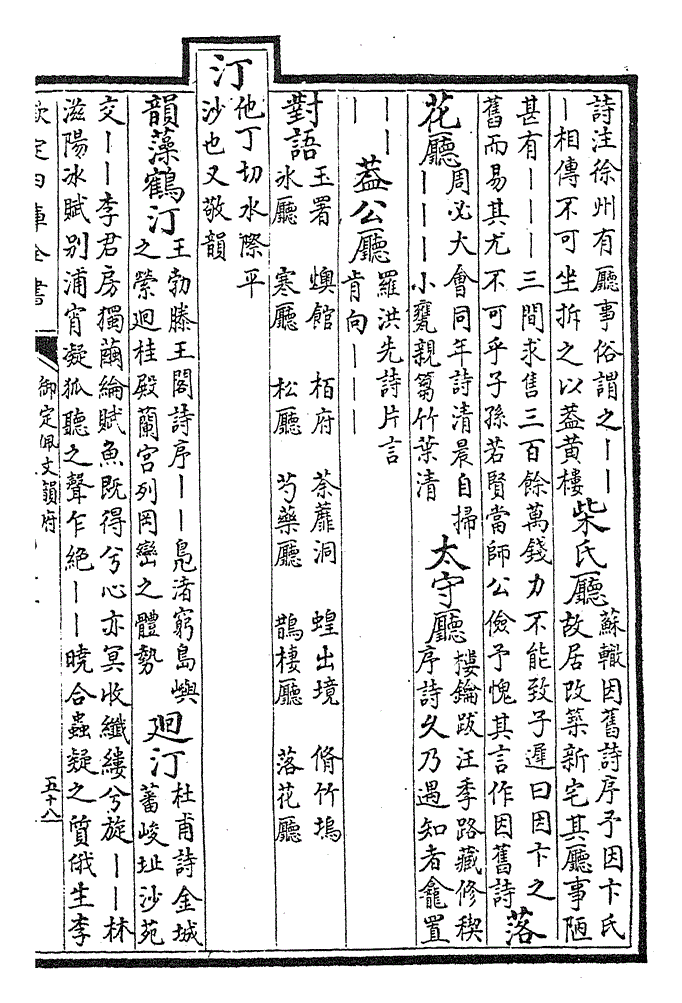 詩注徐州有廳事俗謂之丨丨
丨相傳不可坐拆之以葢黃樓
柴氏廳
蘇轍因舊詩序予因卞氏
故居改築新宅其廳事陋
甚有丨丨丨三間求售三百餘萬錢力不能致子遲曰因卞之
舊而易其尤不可乎子孫若賢當師公儉予愧其言作因舊詩
落
花廳
周必大會同年詩清晨自掃
丨丨丨小甕親篘竹葉清
太守廳
樓鑰跋汪季路藏修禊
序詩久乃遇知者龕置
丨丨
丨
葢公廳
羅洪先詩片言
肯向丨丨丨
對語
玉署 燠館 栢府 荼蘼洞 蝗出境 脩竹塢
氷廳 寒廳 松廳 芍藥廳 鵲棲廳 落花廳
汀
他丁切水際平
沙也又敬韻
韻藻鶴汀
王勃滕王閣詩序丨丨鳧渚窮島嶼
之縈迴桂殿蘭宮列岡巒之體勢
廻汀
杜甫詩金城
蓄峻址沙苑
交丨丨李君房獨繭綸賦魚既得兮心亦冥收纖縷兮旋丨丨林
滋陽冰賦别浦宵凝狐聽之聲乍絕丨丨曉合蟲疑之質俄生李
欽定四庫全書
御定佩文韻府
五十八